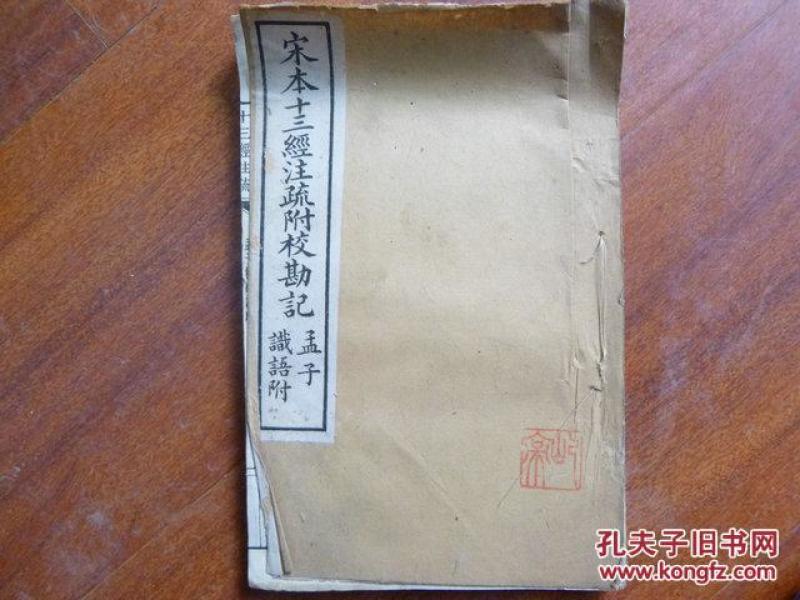 宋本十三經注疏附校勘記
孟子
識語附
十三經注疏
孔夫子旧书网
www.kongfz.com